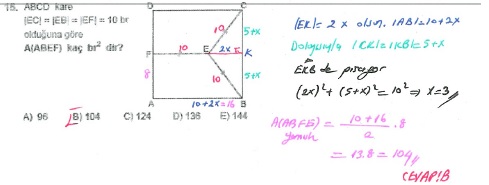 15. ABCD kare
|EC| = |EB| = |EF| = 10 br
olduğuna göre
A(ABEF) kaç br² dir?
A) 96 B) 104 C) 124 D) 136 E) 144
D C
10 5+x
F 10 E 2x K
8 10 5+x
A 10+2x=16 B
|EK| = 2x olsun. |AB|=10+2x
Dolayısıyla |CK|=|KB|=5+x
EKB de pisagor
(2x)² + (5+x)² = 10² ⇒ x=3
A(ABFE) = 10+16 / 2 . 8
yamuk
= 13.8 = 104
CEVAP: B